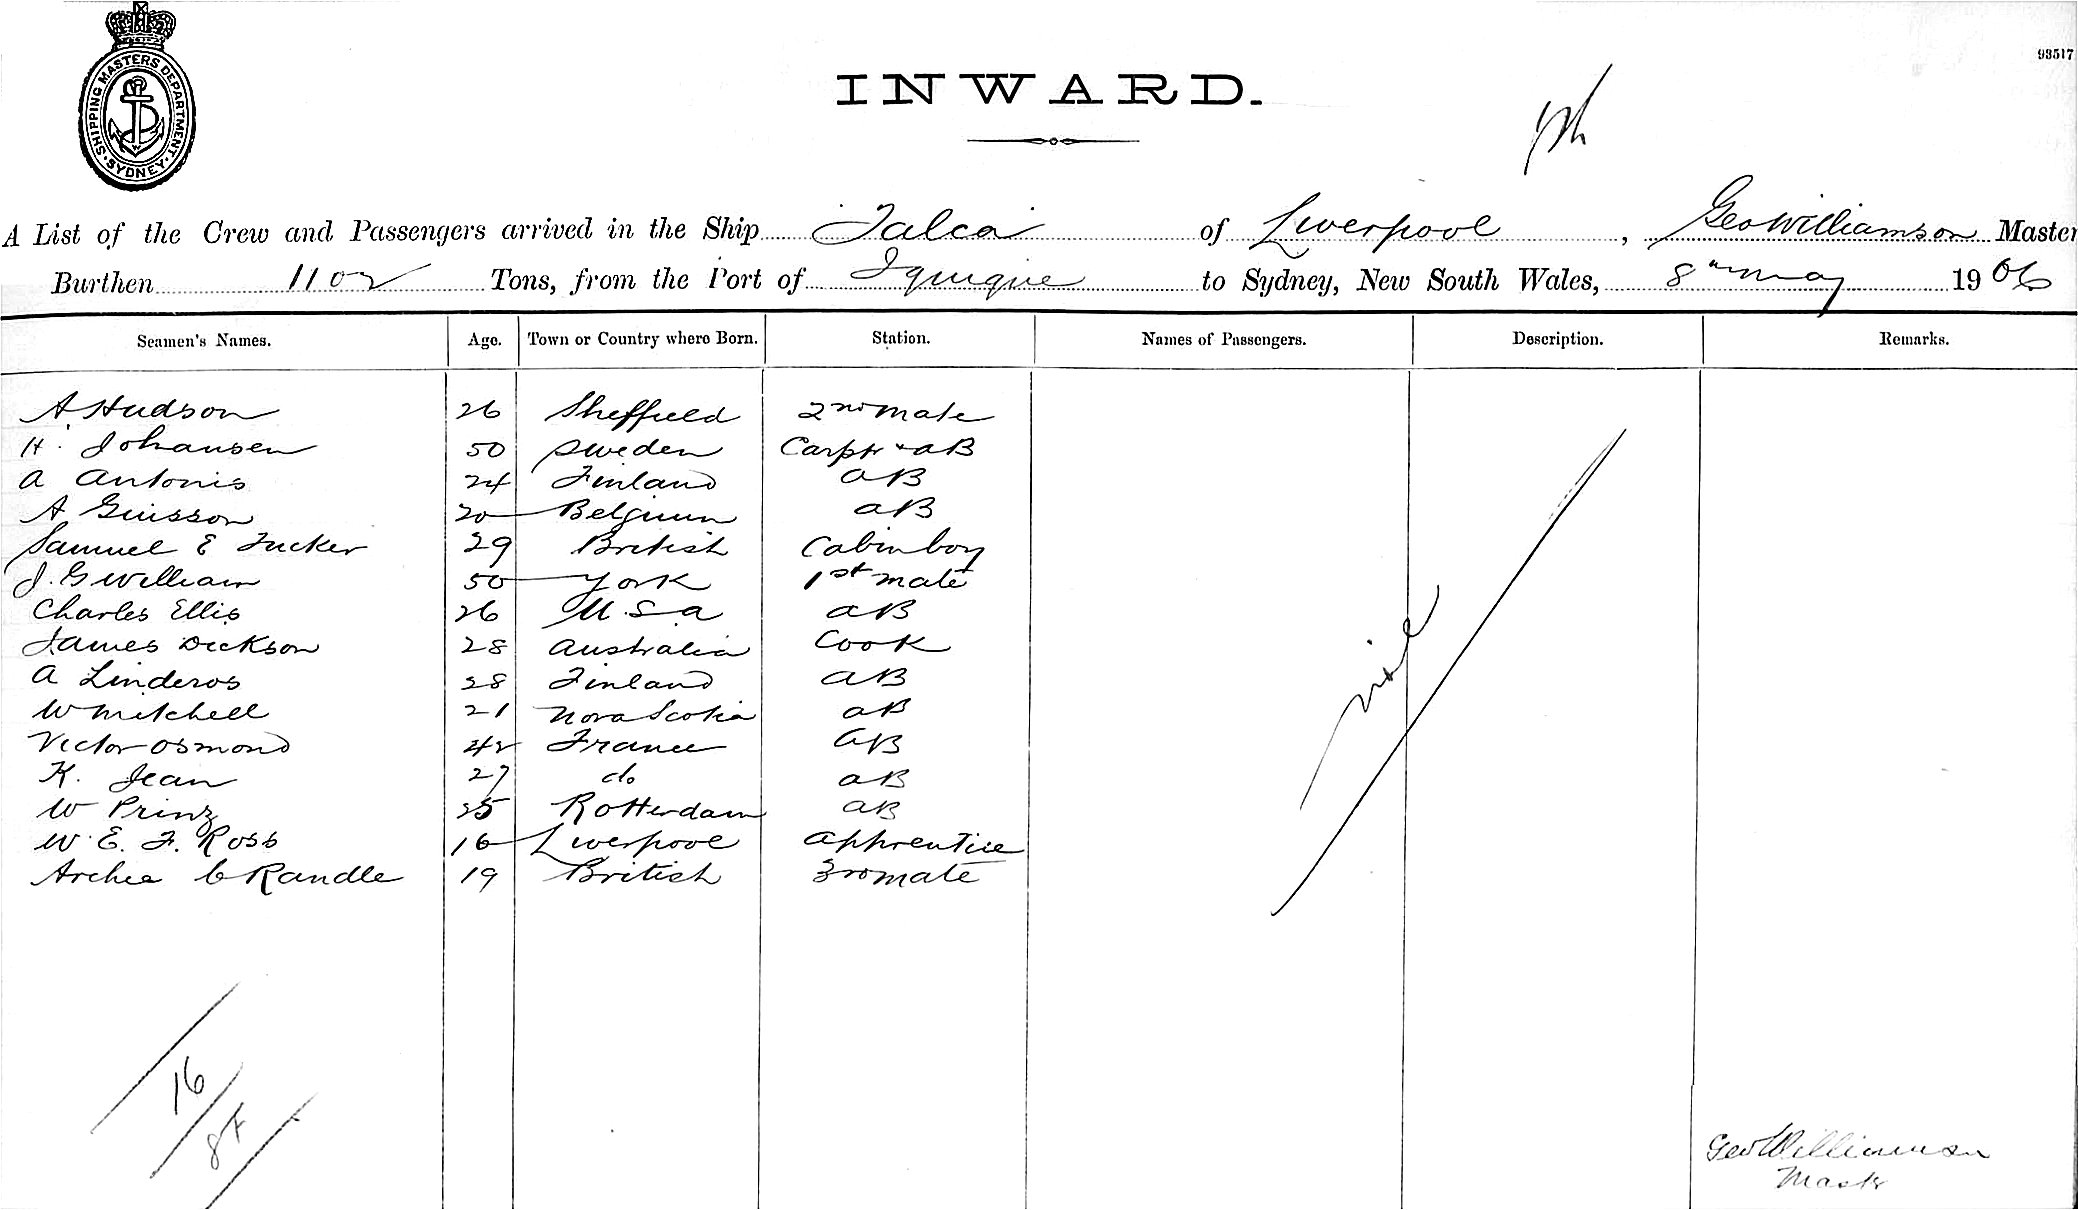 SHIPPING MASTERS DEPARTMENT. SYDNEY.
93517
INWARD.
A List of the Crew and Passengers arrived in the Ship Talca of Liverpool, Geo Williamson Master
Burthen 1102 Tons, from the Port of Iquique to Sydney, New South Wales, 8th May 1906
Seamen's Names. Age. Town or Country where Born. Station. Names of Passengers. Description. Remarks.
A Hudson 26 Sheffield 2nd mate
H. Johansen 50 Sweden Carptr & AB
A Antonis 24 Finland AB
A 20 Belgium AB
Samuel E Tucker 29 British Cabin boy
J. G William 50 York 1st mate
Charles Ellis 26 U.S.A AB
James Dickson 28 Australia Cook
A Linderos 28 Finland AB
W Mitchell 21 Nova Scotia AB
Victor Osmond 42 France AB
K. Jean 27 do AB
W Prinz 25 Rotterdam AB
W. E. F. Ross 16 Liverpool Apprentice
Archie C Randle 19 British 3rd mate
nil
16
Geo Williamson
Mastr